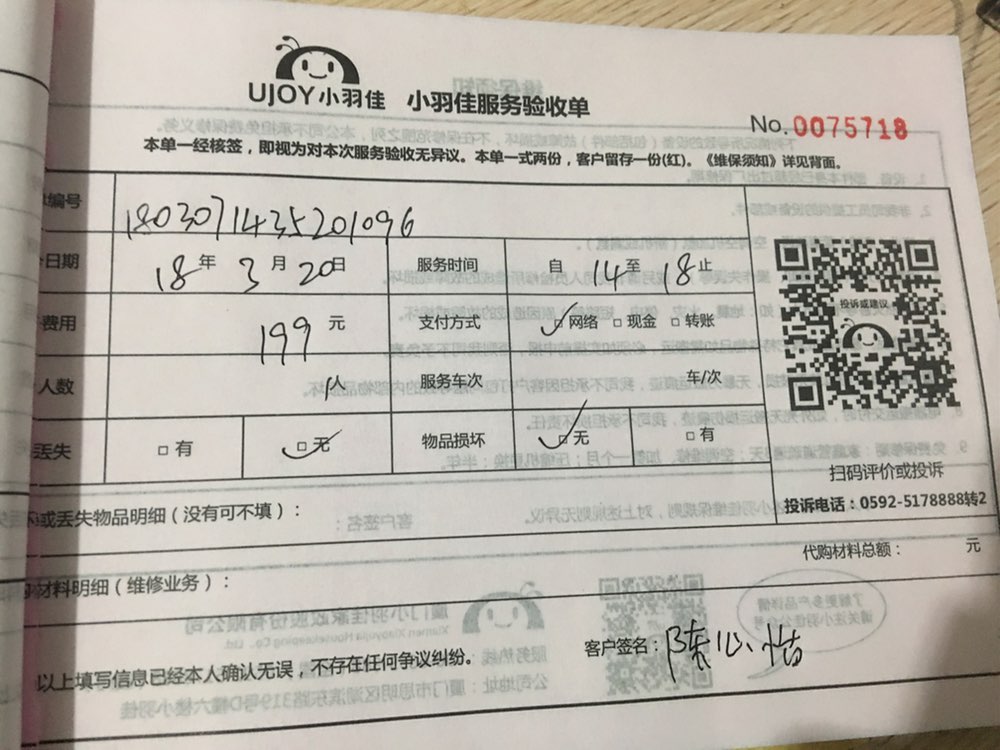 UJOY小羽佳 小羽佳服务验收单
No. 0075718
本单一经核签，即视为对本次服务验收无异议。本单一式两份，客户留存一份(红)。《维保须知》详见背面。
编号 1803071435201096
日期 18年3月20日 服务时间 自14至18止
费用 199元 支付方式 □网络 □现金 □转账
人数 1人 服务车次 车/次
丢失 □有 □无 物品损坏 □无 □有
投诉或建议
扫码评价或投诉
投诉电话：0592-5178888转2
或丢失物品明细（没有可不填）：
代购材料总额： 元
材料明细（维修业务）：
客户签名：陈心怡
以上填写信息已经本人确认无误，不存在任何争议纠纷。